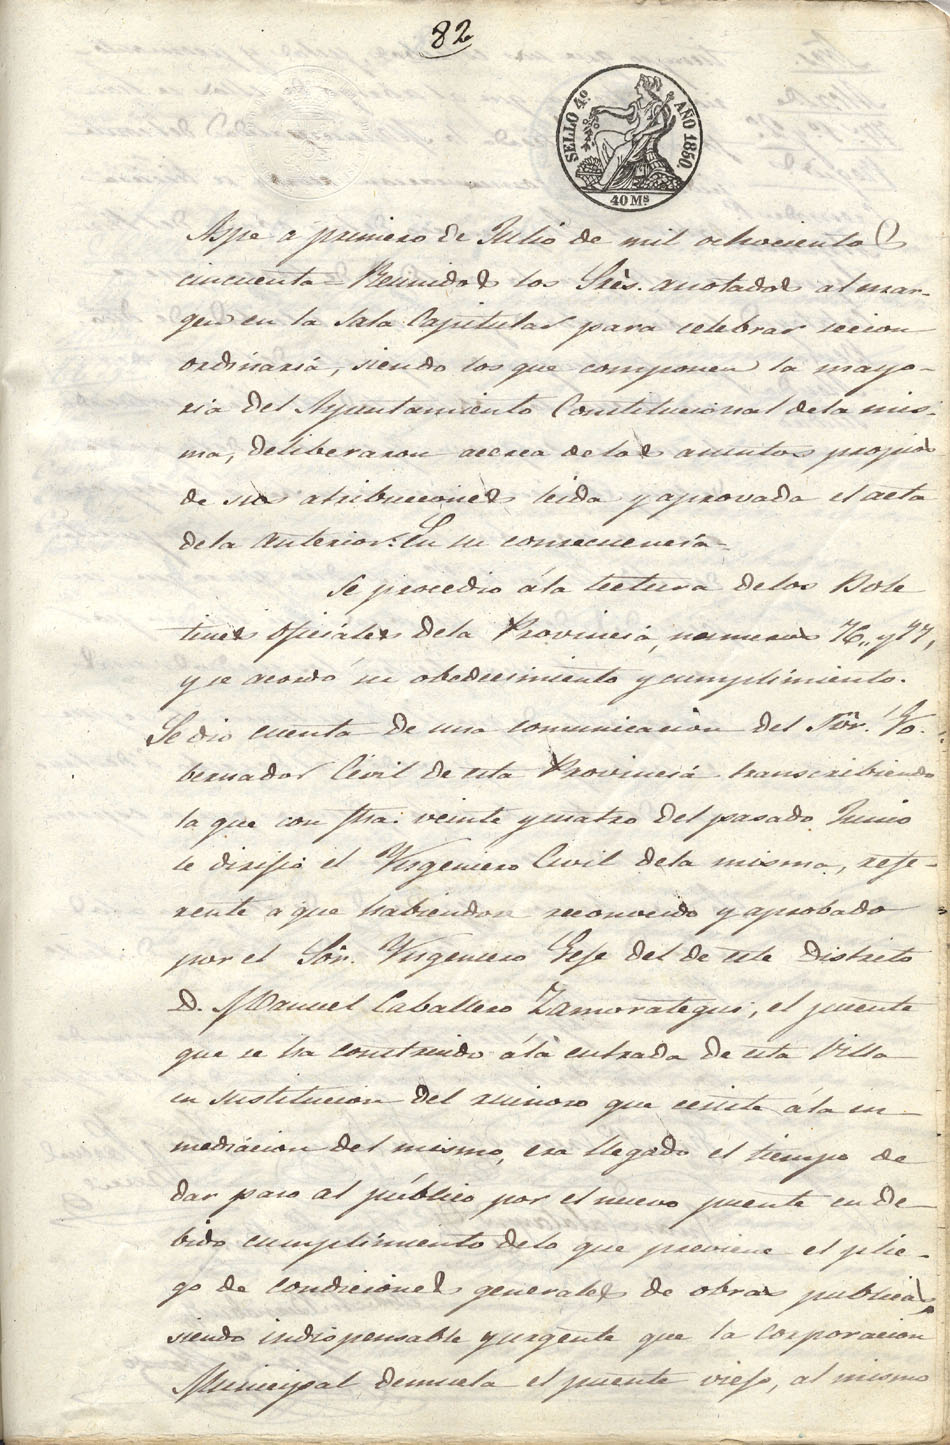 82
SELLO 4º AÑO 1850
40 Ms
Aspe a primero de Julio de mil ochocientos
cincuenta = Reunidos los Sres. anotados al mar-
gen en la Sala Capitular para celebrar secion
ordinaria, siendo los que componen la mayo-
ria del Ayuntamiento Constitucional de la mis-
ma, deliberaron acerca de los asuntos propios
de sus atribuciones leida y aprovada el acta
de la anterior. En su consecuencia =
Se procedio á la lectura de los Bole
tines oficiales de la Provincia, numeros 76,, y 77,
y se acordó su obedecimiento y cumplimiento.
Se dio cuenta de una comunicacion del Sõr. Go-
bernador Civil de esta Provincia transcribiendo
la que con fha. veinte y cuatro del pasado Junio
le dirijio el Yngeniero Civil de la misma, refe-
rente a que habiendose reconocido y aprobado
por el Sõr. Yngeniero Gefe del de este distrito
D. Manuel Caballero Zamorategui, el puente
que se ha construido á la entrada de esta Villa
en sustitucion del ruinoso que ecsiste á la in-
mediacion del mismo, era llegado el tiempo de
dar paso al público por el nuevo puente en de-
bido cumplimiento de lo que previene el plie-
go de condiciones generales de obras publicas,
siendo indispensable y urgente que la corporacion
Municipal demuela el puente viejo, al mismo